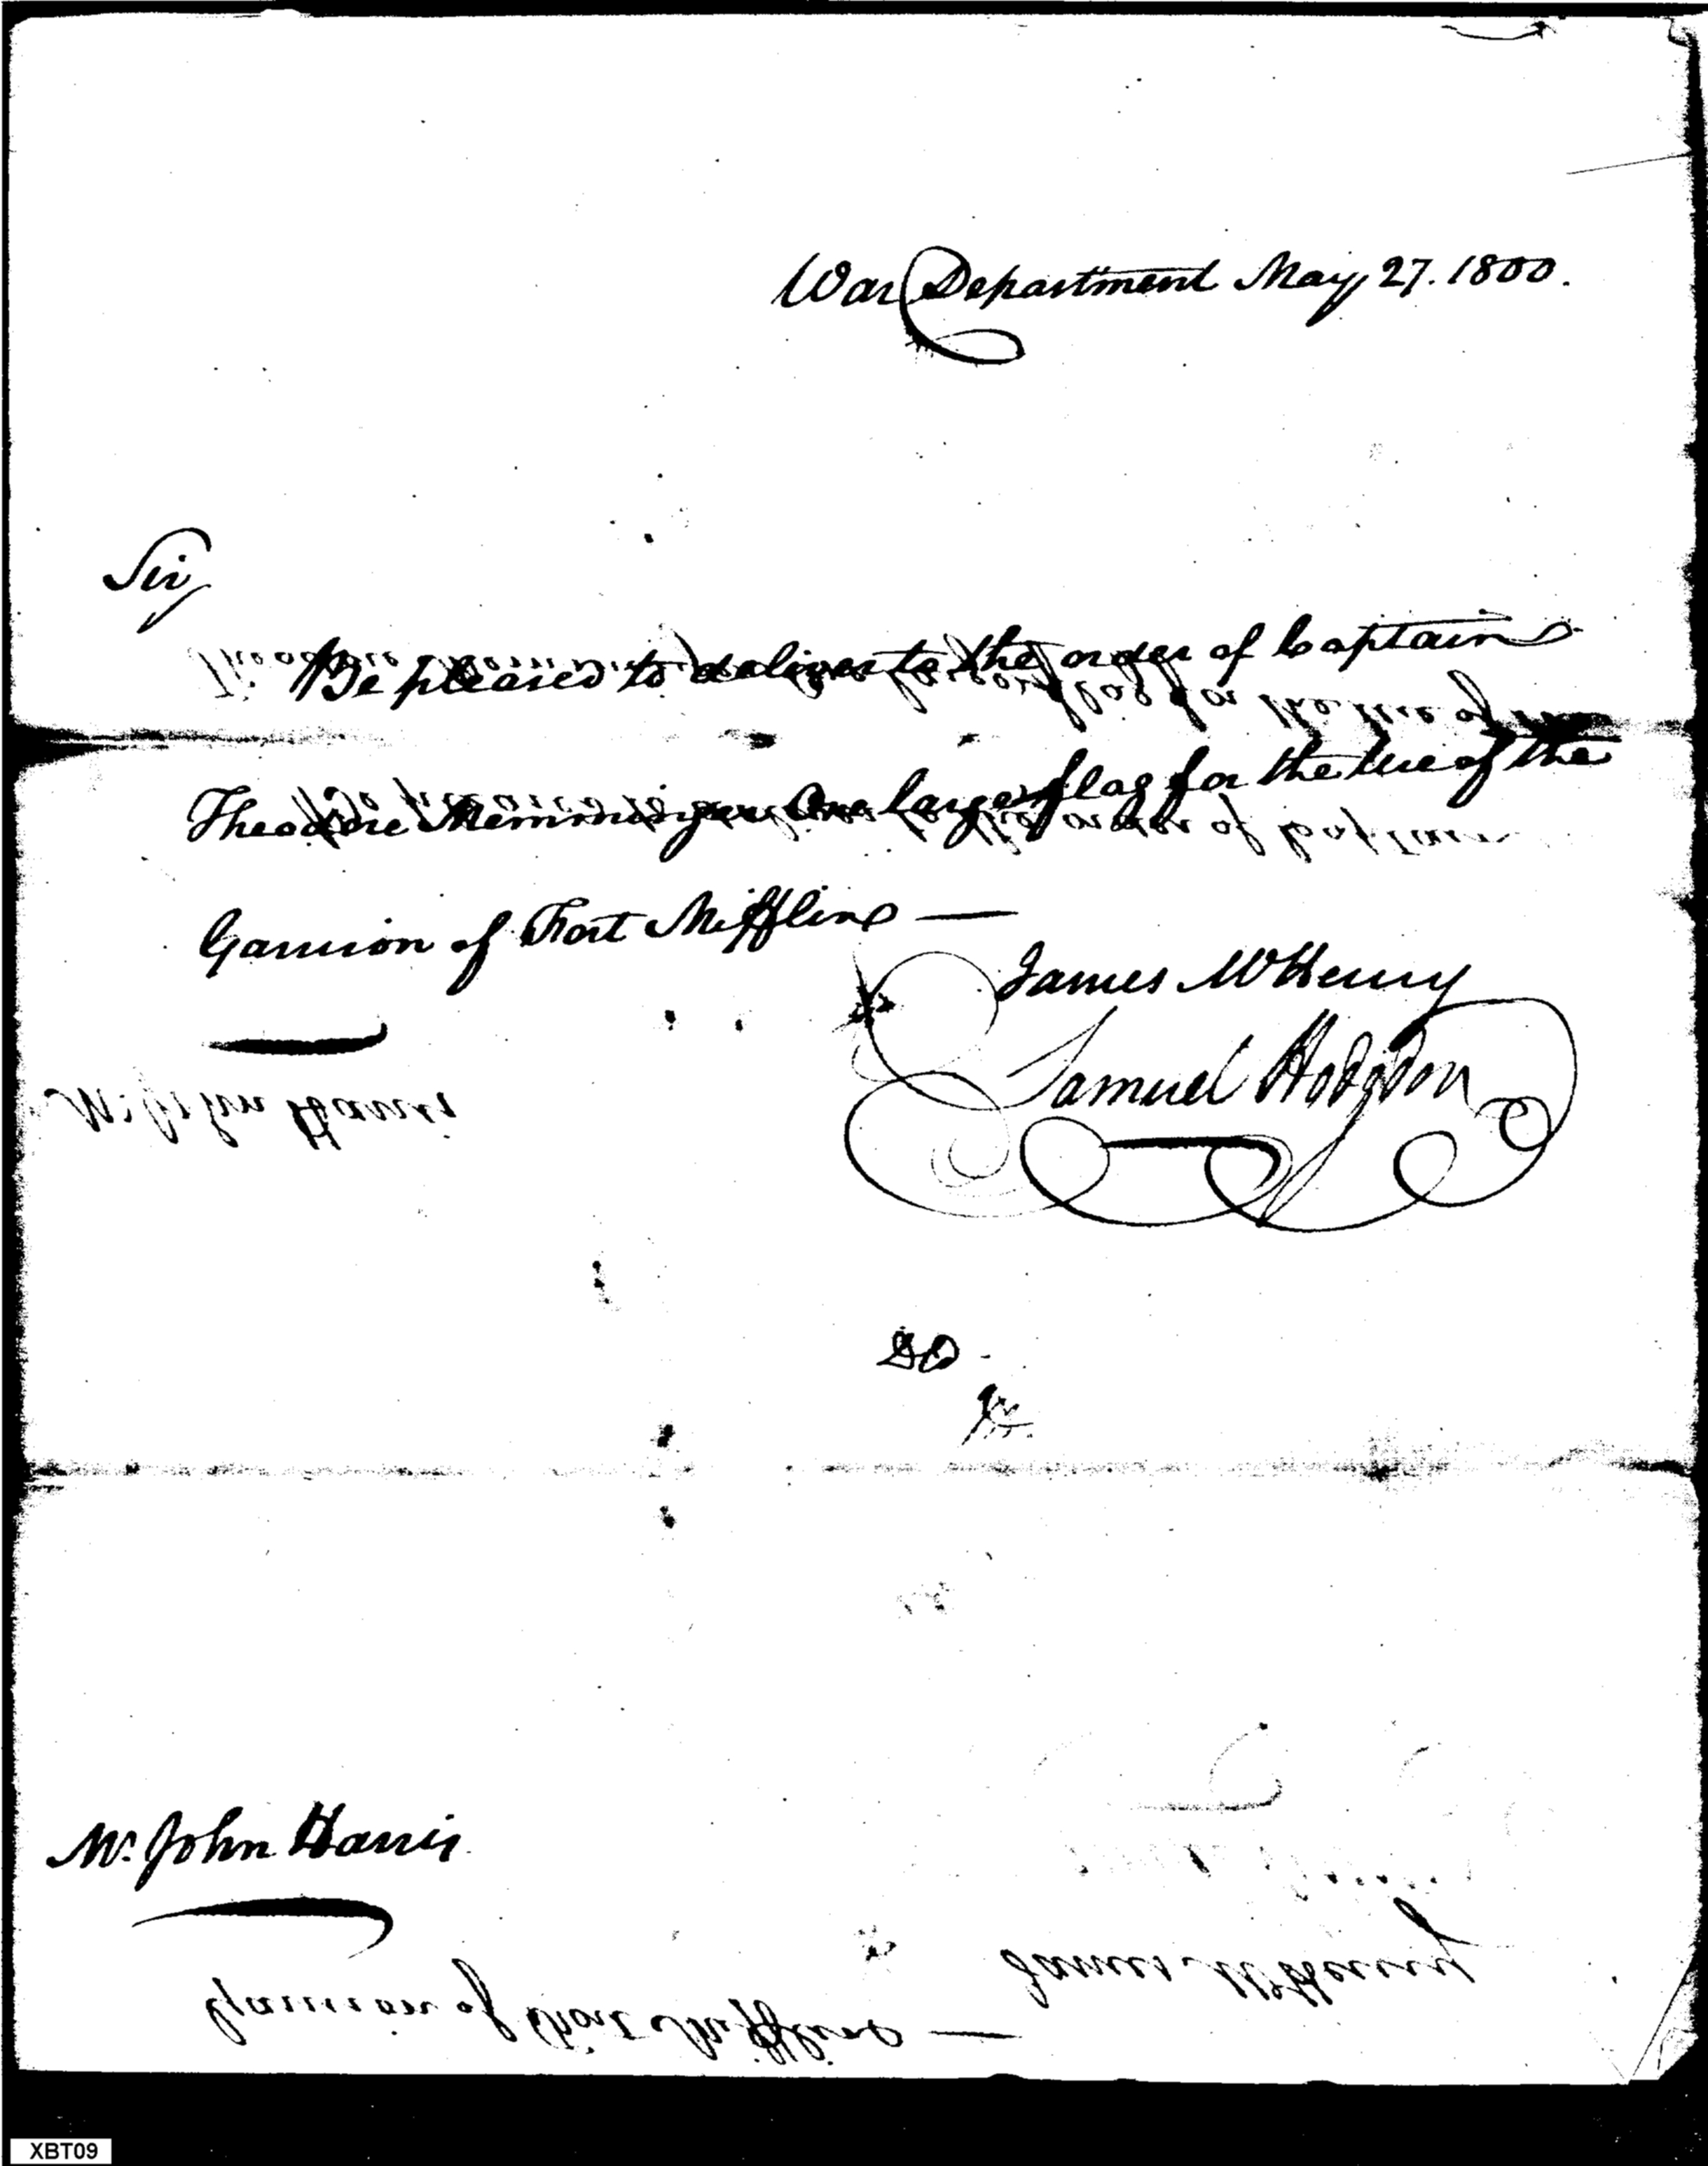 War Department May 27. 1800.
Sir,
Be pleased to deliver to the order of Captain
Theodore Memminger One large flag for the use of the
Garrison of Fort Mifflin —
James McHenry
Samuel Hodgdon
Mr. John Harris
XBT09